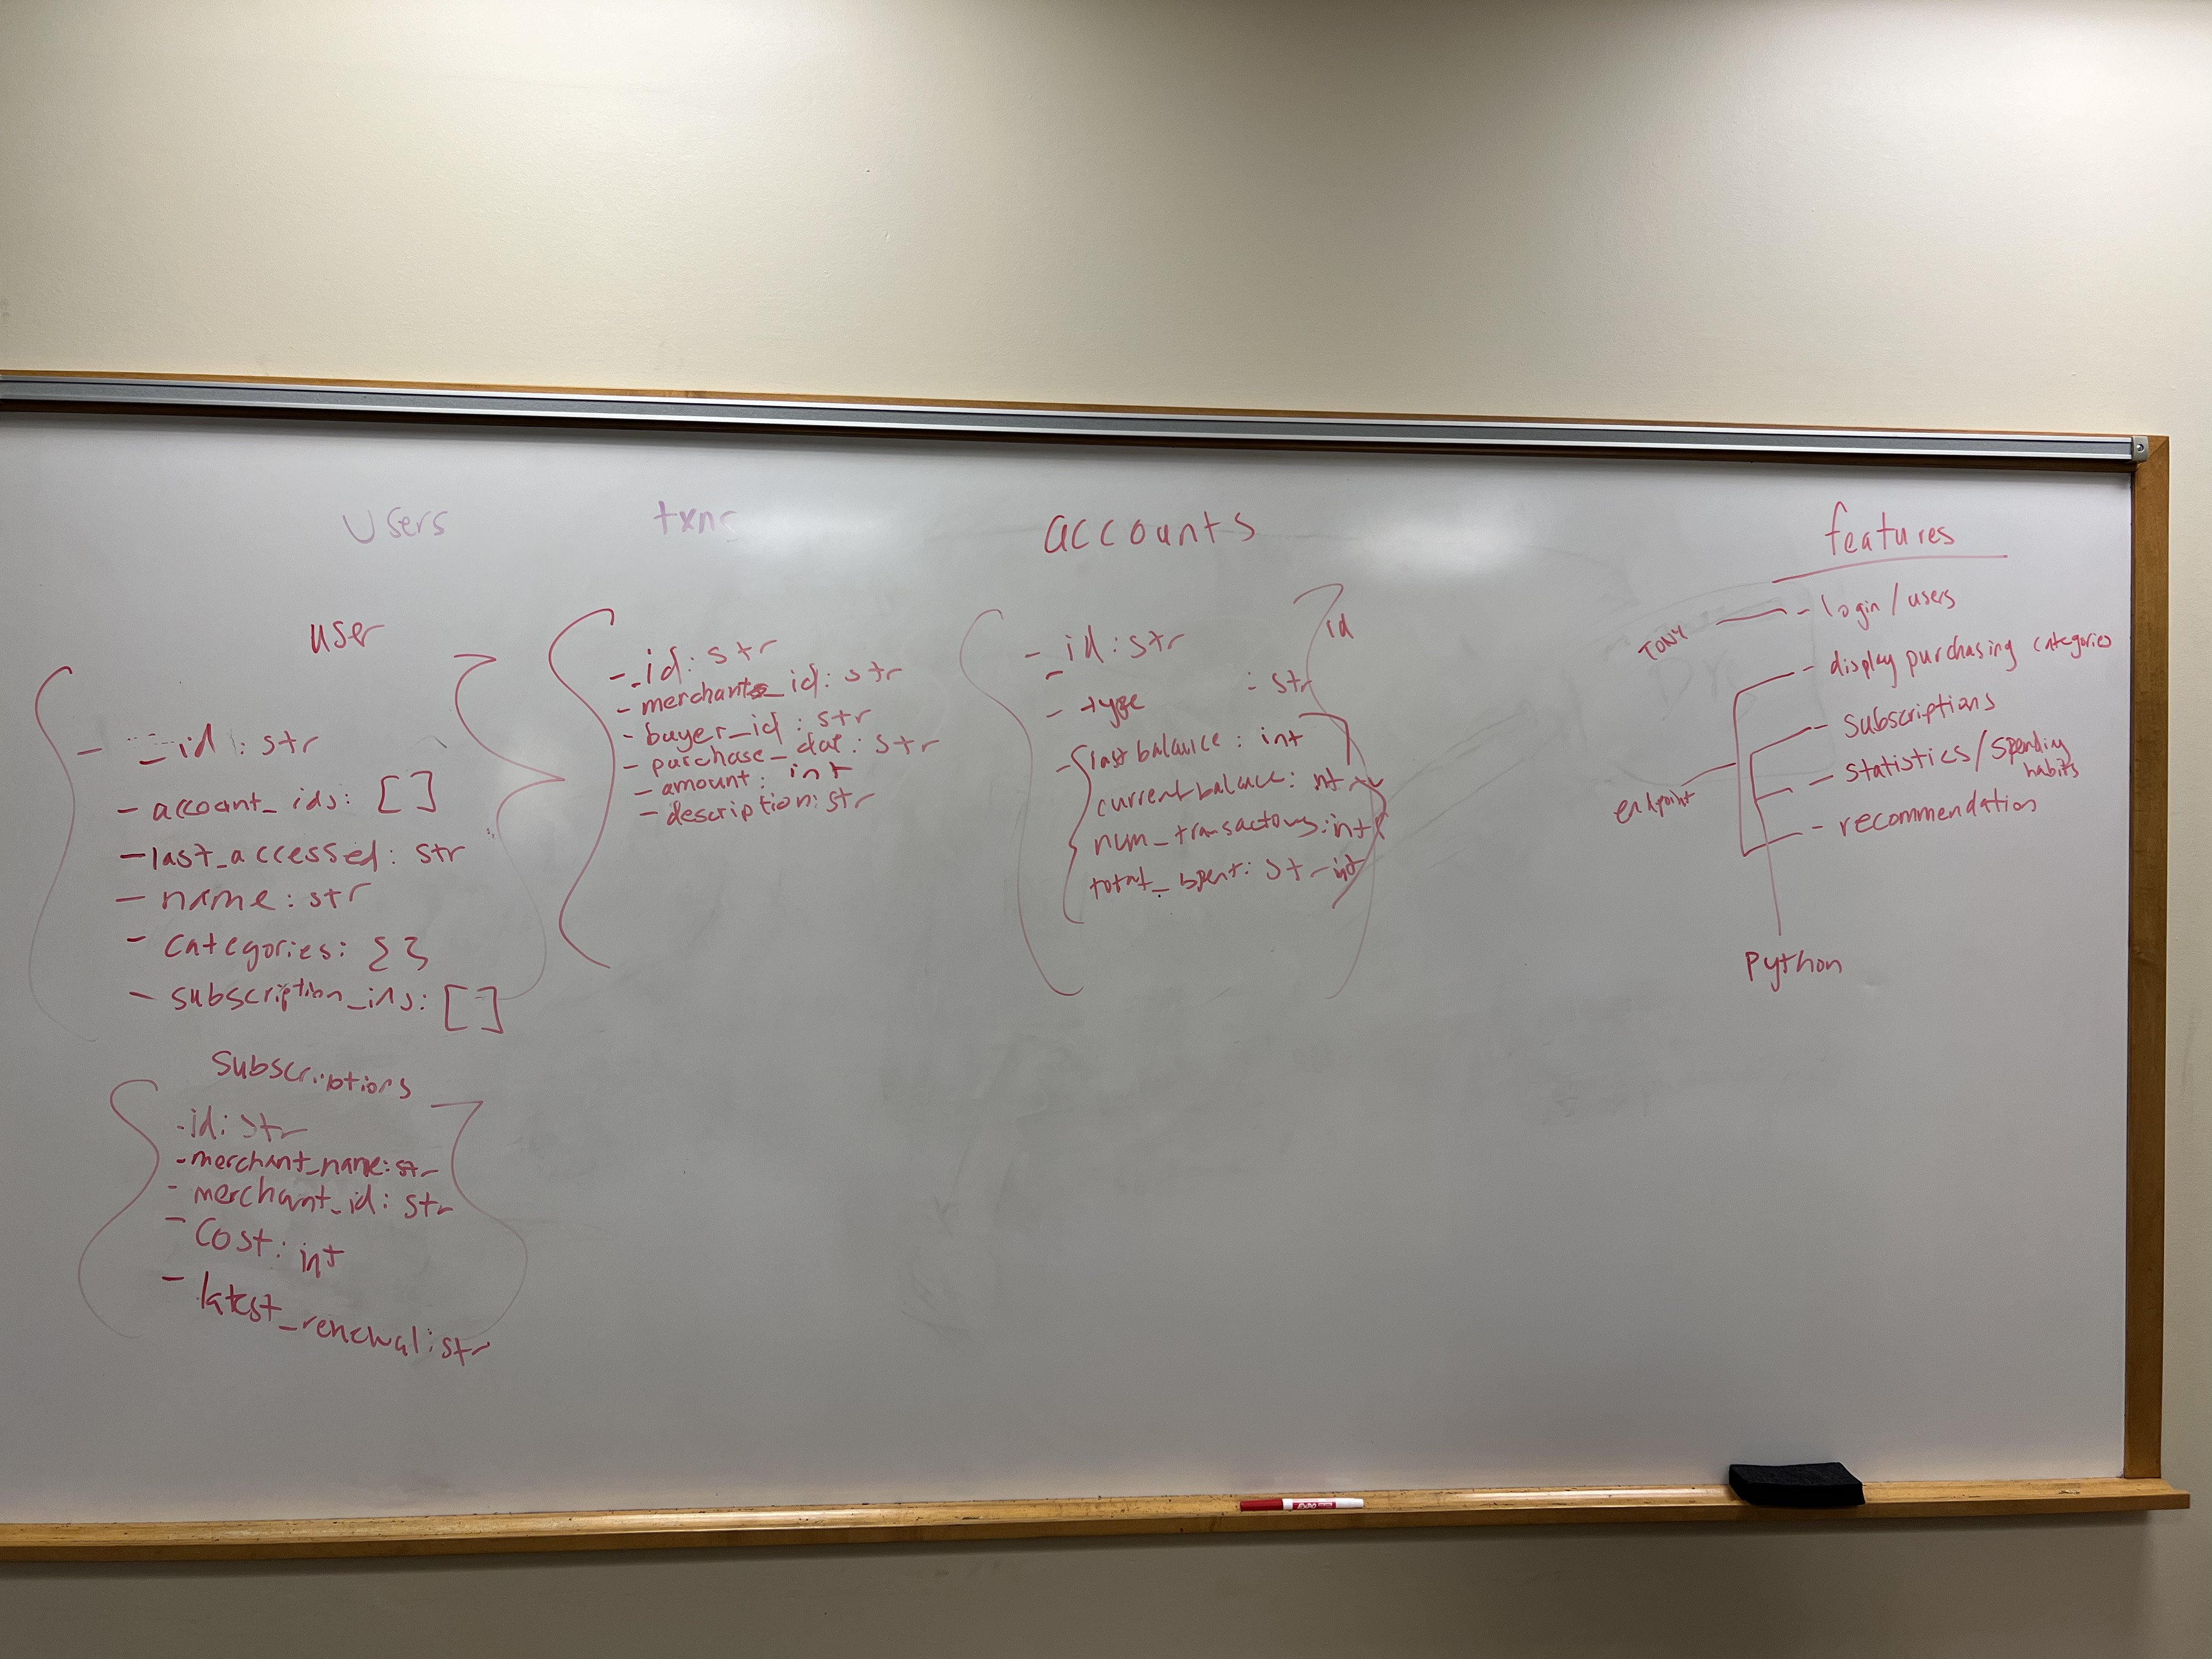 Users
user
- _id: str
- account_ids: []
- last_accessed: str
- name: str
- categories: {}
- subscription_ids: []
Subscriptions
- id: str
- merchant_name: str
- merchant_id: str
- Cost: int
- latest_renewal: str
txns
- _id: str
- merchant_id: str
- buyer_id: str
- purchase_dat: str
- amount: int
- description: str
accounts
- _id: str
id
- type : str
- last balance: int
current balance: int
num_transactions: int
total_spent: str int
features
TONY
- login/users
- display purchasing categories
- subscriptions
- statistics/spending
habits
endpoint
- recommendation
Python